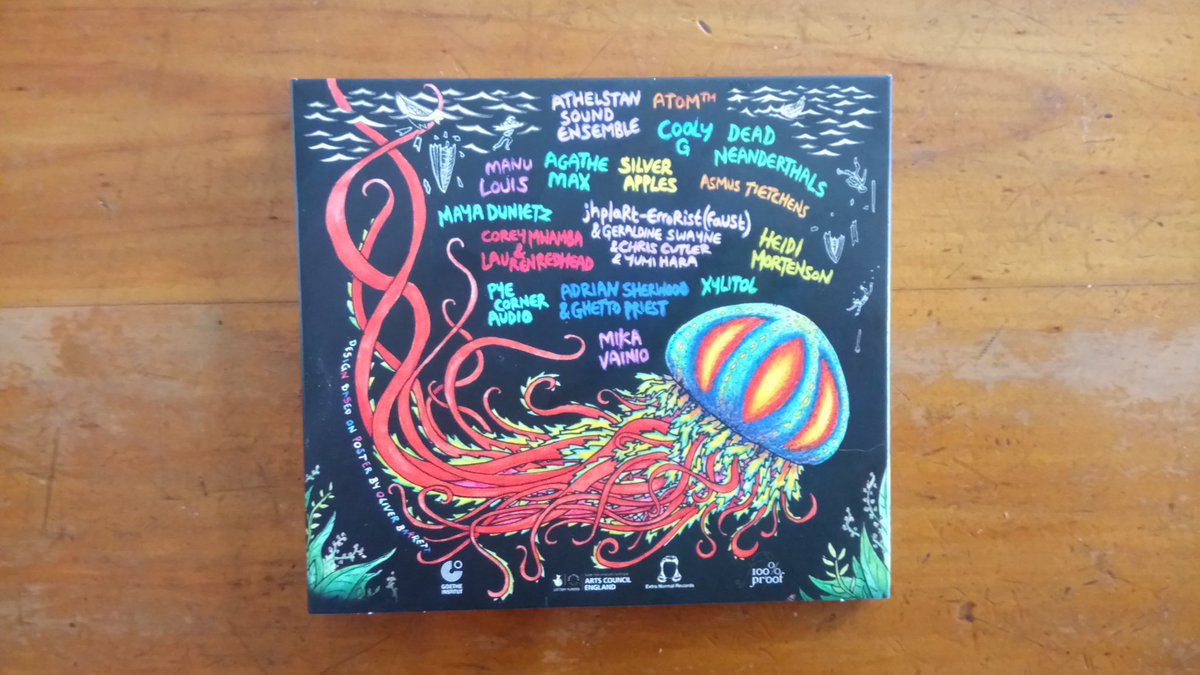 ATHELSTAN
SOUND
ENSEMBLE
ATOM™
COOLY
G
DEAD
NEANDERTHALS
MANU
LOUIS
AGATHE
MAX
SILVER
APPLES
ASMUS TIETCHENS
MAYA DUNIETZ
jhp|aRt-ErroRist(faust)
& GERALDINE SWAYNE
& CHRIS CUTLER
& YUMI HARA
COREY MWAMBA
&
LAUREN REDHEAD
HEIDI
MORTENSON
PYE
CORNER
AUDIO
ADRIAN SHERWOOD
& GHETTO PRIEST
XYLITOL
MIKA
VAINIO
DESIGN BASED ON POSTER BY OLIVER BARRETT
GOETHE
INSTITUT
LOTTERY FUNDED
ARTS COUNCIL
ENGLAND
Extra Normal Records
100%
proof